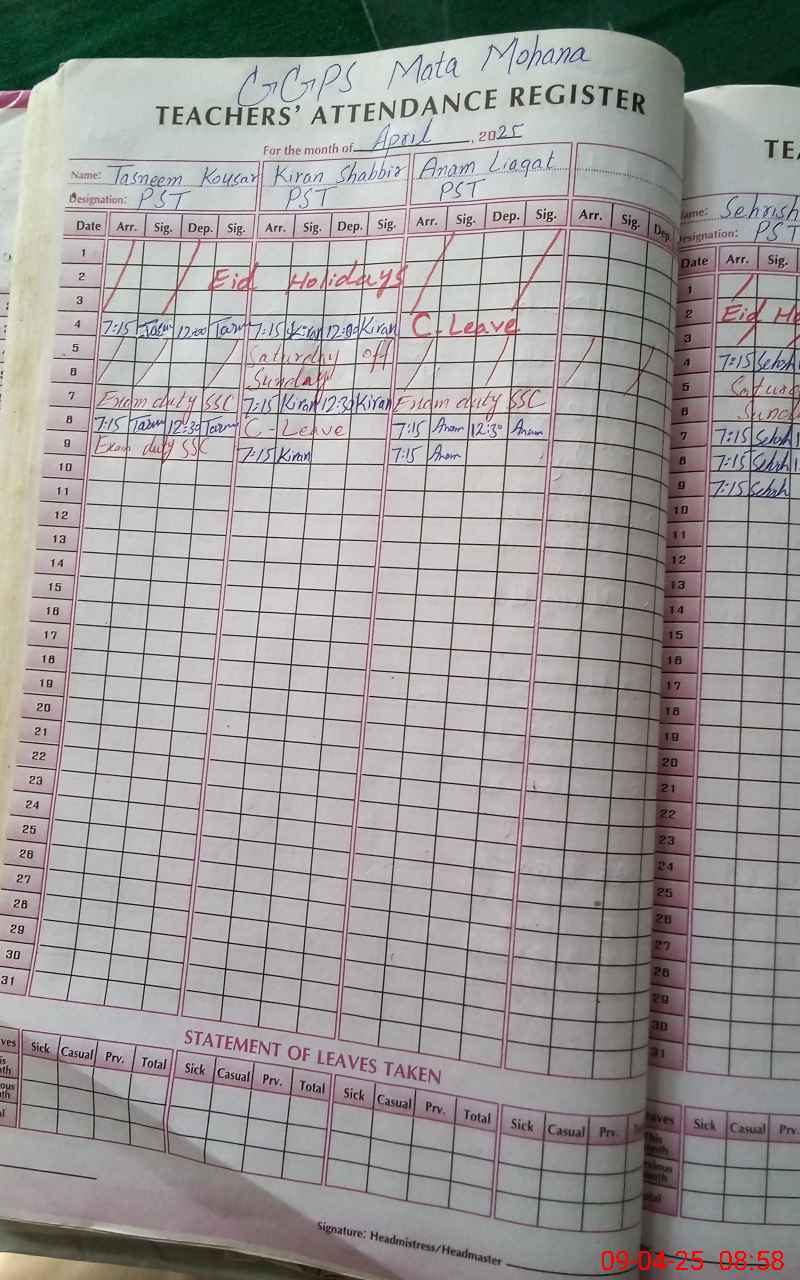 GGPS Mata Mohana
TEACHERS' ATTENDANCE REGISTER
For the month of April, 2025
Name: Tasneem Kousar Kiran Shabbir Anam Liaqat
Designation: PST PST PST
Date Arr. Sig. Dep. Sig. Arr. Sig. Dep. Sig. Arr. Sig. Dep. Sig. Arr. Sig. Dep.
1
2 Eid Holidays
3
4 7:15 12:00 7:15 Kiran 12:00 Kiran C-Leave
5 Saturday off
6 Sunday
7 Exam duty SSC 7:15 Kiran 12:30 Kiran Exam duty SSC
8 7:15 12:30 C-Leave 7:15 Anam 12:30 Anam
9 Exam duty SSC 7:15 Kiran 7:15 Anam
10
11
12
13
14
15
16
17
18
19
20
21
22
23
24
25
26
27
28
29
30
31
STATEMENT OF LEAVES TAKEN
Sick Casual Prv. Total Sick Casual Prv. Total Sick Casual Prv. Total Sick Casual Prv.
Signature: Headmistress/Headmaster
TEA
Name: Sehrish
Designation: PST
Date Arr. Sig.
1
2 Eid Ho
3
4 7:15
5 Satur
6 Sund
7 7:15
8 7:15
9 7:15
10
11
12
13
14
15
16
17
18
19
20
21
22
23
24
25
26
27
28
29
30
31
Leaves Sick Casual Prv.
This Month
Previous Month
Total
09-04-25 08:58